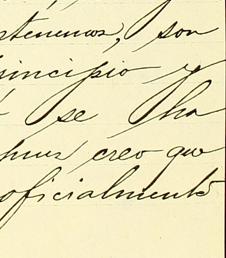 rtenemos, son
principio y
se ha
pues creo que
oficialmente